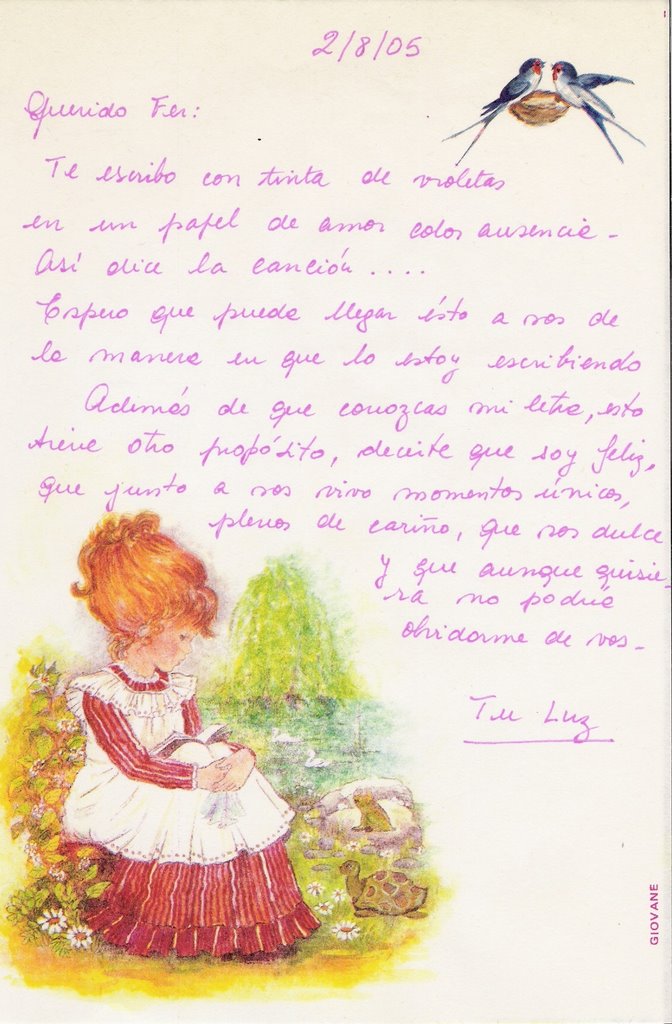 2/8/05
Querido Fer:
Te escribo con tinta de violetas
en un papel de amor color ausencia -
Así dice la canción ....
Espero que pueda llegar ésto a vos de
la manera en que lo estoy escribiendo
Además de que conozcas mi letra, esto
tiene otro propósito, decirte que soy feliz,
que junto a vos vivo momentos únicos,
plenos de cariño, que sos dulce
y que aunque quisie-
ra no podría
olvidarme de vos -
Tu Luz
GIOVANE